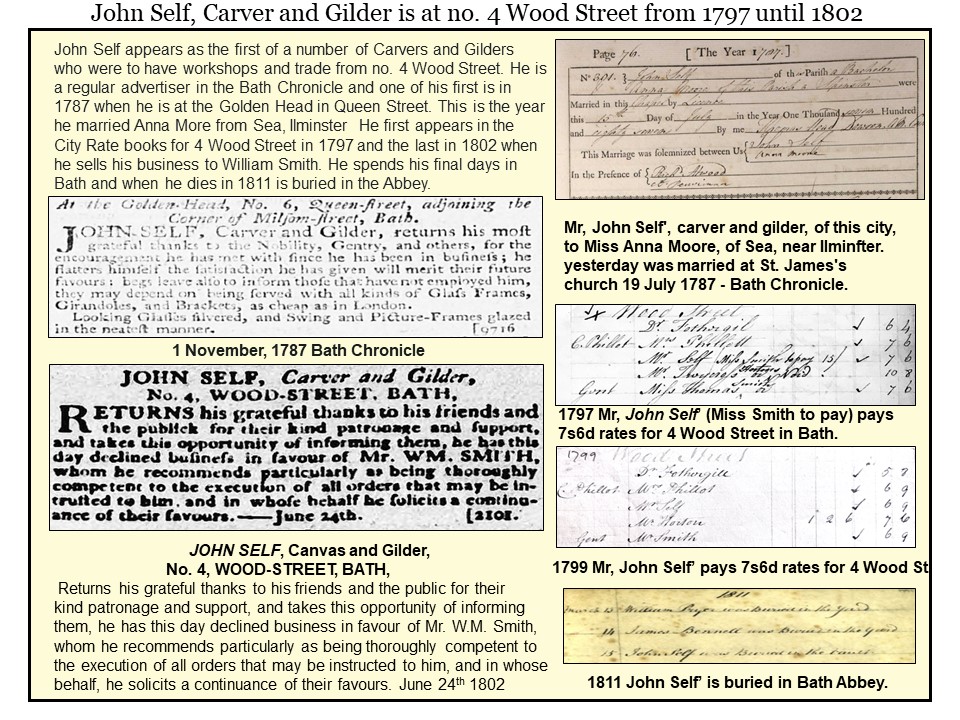 John Self, Carver and Gilder is at no. 4 Wood Street from 1797 until 1802
John Self appears as the first of a number of Carvers and Gilders
who were to have workshops and trade from no. 4 Wood Street. He is
a regular advertiser in the Bath Chronicle and one of his first is in
1787 when he is at the Golden Head in Queen Street. This is the year
he married Anna More from Sea, Ilminster   He first appears in the
City Rate books for 4 Wood Street in 1797 and the last in 1802 when
he sells his business to William Smith. He spends his final days in
Bath and when he dies in 1811 is buried in the Abbey.
At the Golden-Head, No. 6, Queen-street, adjoining the
Corner of Milsom-street, Bath.
JOHN SELF, Carver and Gilder, returns his most
grateful thanks to the Nobility, Gentry, and others, for the
encouragement he has met with since he has been in business; he
flatters himself the satisfaction he has given will merit their future
favours: begs leave also to inform those that have not employed him,
they may depend on being served with all kinds of Glass Frames,
Girandoles, and Brackets, as cheap as in London.
Looking Glasses silvered, and Swing and Picture-Frames glazed
in the neatest manner. [9716
1 November, 1787 Bath Chronicle
JOHN SELF, Carver and Gilder,
No. 4, WOOD-STREET, BATH,
RETURNS his grateful thanks to his friends and
the publick for their kind patronage and support,
and takes this opportunity of informing them, he has this
day declined business in favour of Mr. WM. SMITH,
whom he recommends particularly as being thoroughly
competent to the execution of all orders that may be in-
trusted to him, and in whose behalf he solicits a continu-
ance of their favours.—June 24th. [2101.
JOHN SELF, Canvas and Gilder,
No. 4, WOOD-STREET, BATH,
Returns his grateful thanks to his friends and the public for their
kind patronage and support, and takes this opportunity of informing
them, he has this day declined business in favour of Mr. W.M. Smith,
whom he recommends particularly as being thoroughly competent to
the execution of all orders that may be instructed to him, and in whose
behalf, he solicits a continuance of their favours. June 24th 1802
Page 76. [ The Year 1787.]
No 301. } John Self of the Parish a Bachelor
Anna Moore of this Parish a Spinster were
Married in this by Licence
this 15th Day of July in the Year One Thousand seven Hundred
and eighty seven By me
This Marriage was solemnized between Us { John Self
Anna Moore
In the Presence of {
Mr, John Self', carver and gilder, of this city,
to Miss Anna Moore, of Sea, near Ilminfter.
yesterday was married at St. James's
church 19 July 1787 - Bath Chronicle.
Wood Street
Dr Fothergil 6 4
C. Phillot Mr Phillott 7 6
Mr Self Miss Smith to pay 15/ 7 6
Mr 10 8
Gent Miss Thomas 7 6
1797 Mr, John Self' (Miss Smith to pay) pays
7s6d rates for 4 Wood Street in Bath.
1799 Wood Street
Dr Fothergill 5 8
C Phillot Mr Phillot 6 9
Mr Self 6 9
Mr Horton 1 2 6 7 6
Gent Mr Smith 6 9
1799 Mr, John Self' pays 7s6d rates for 4 Wood St
1811
March 13 William Pryor was Buried in the Yard
14 James Bennett was Buried in the Yard
15 John Self was Buried in the
1811 John Self' is buried in Bath Abbey.